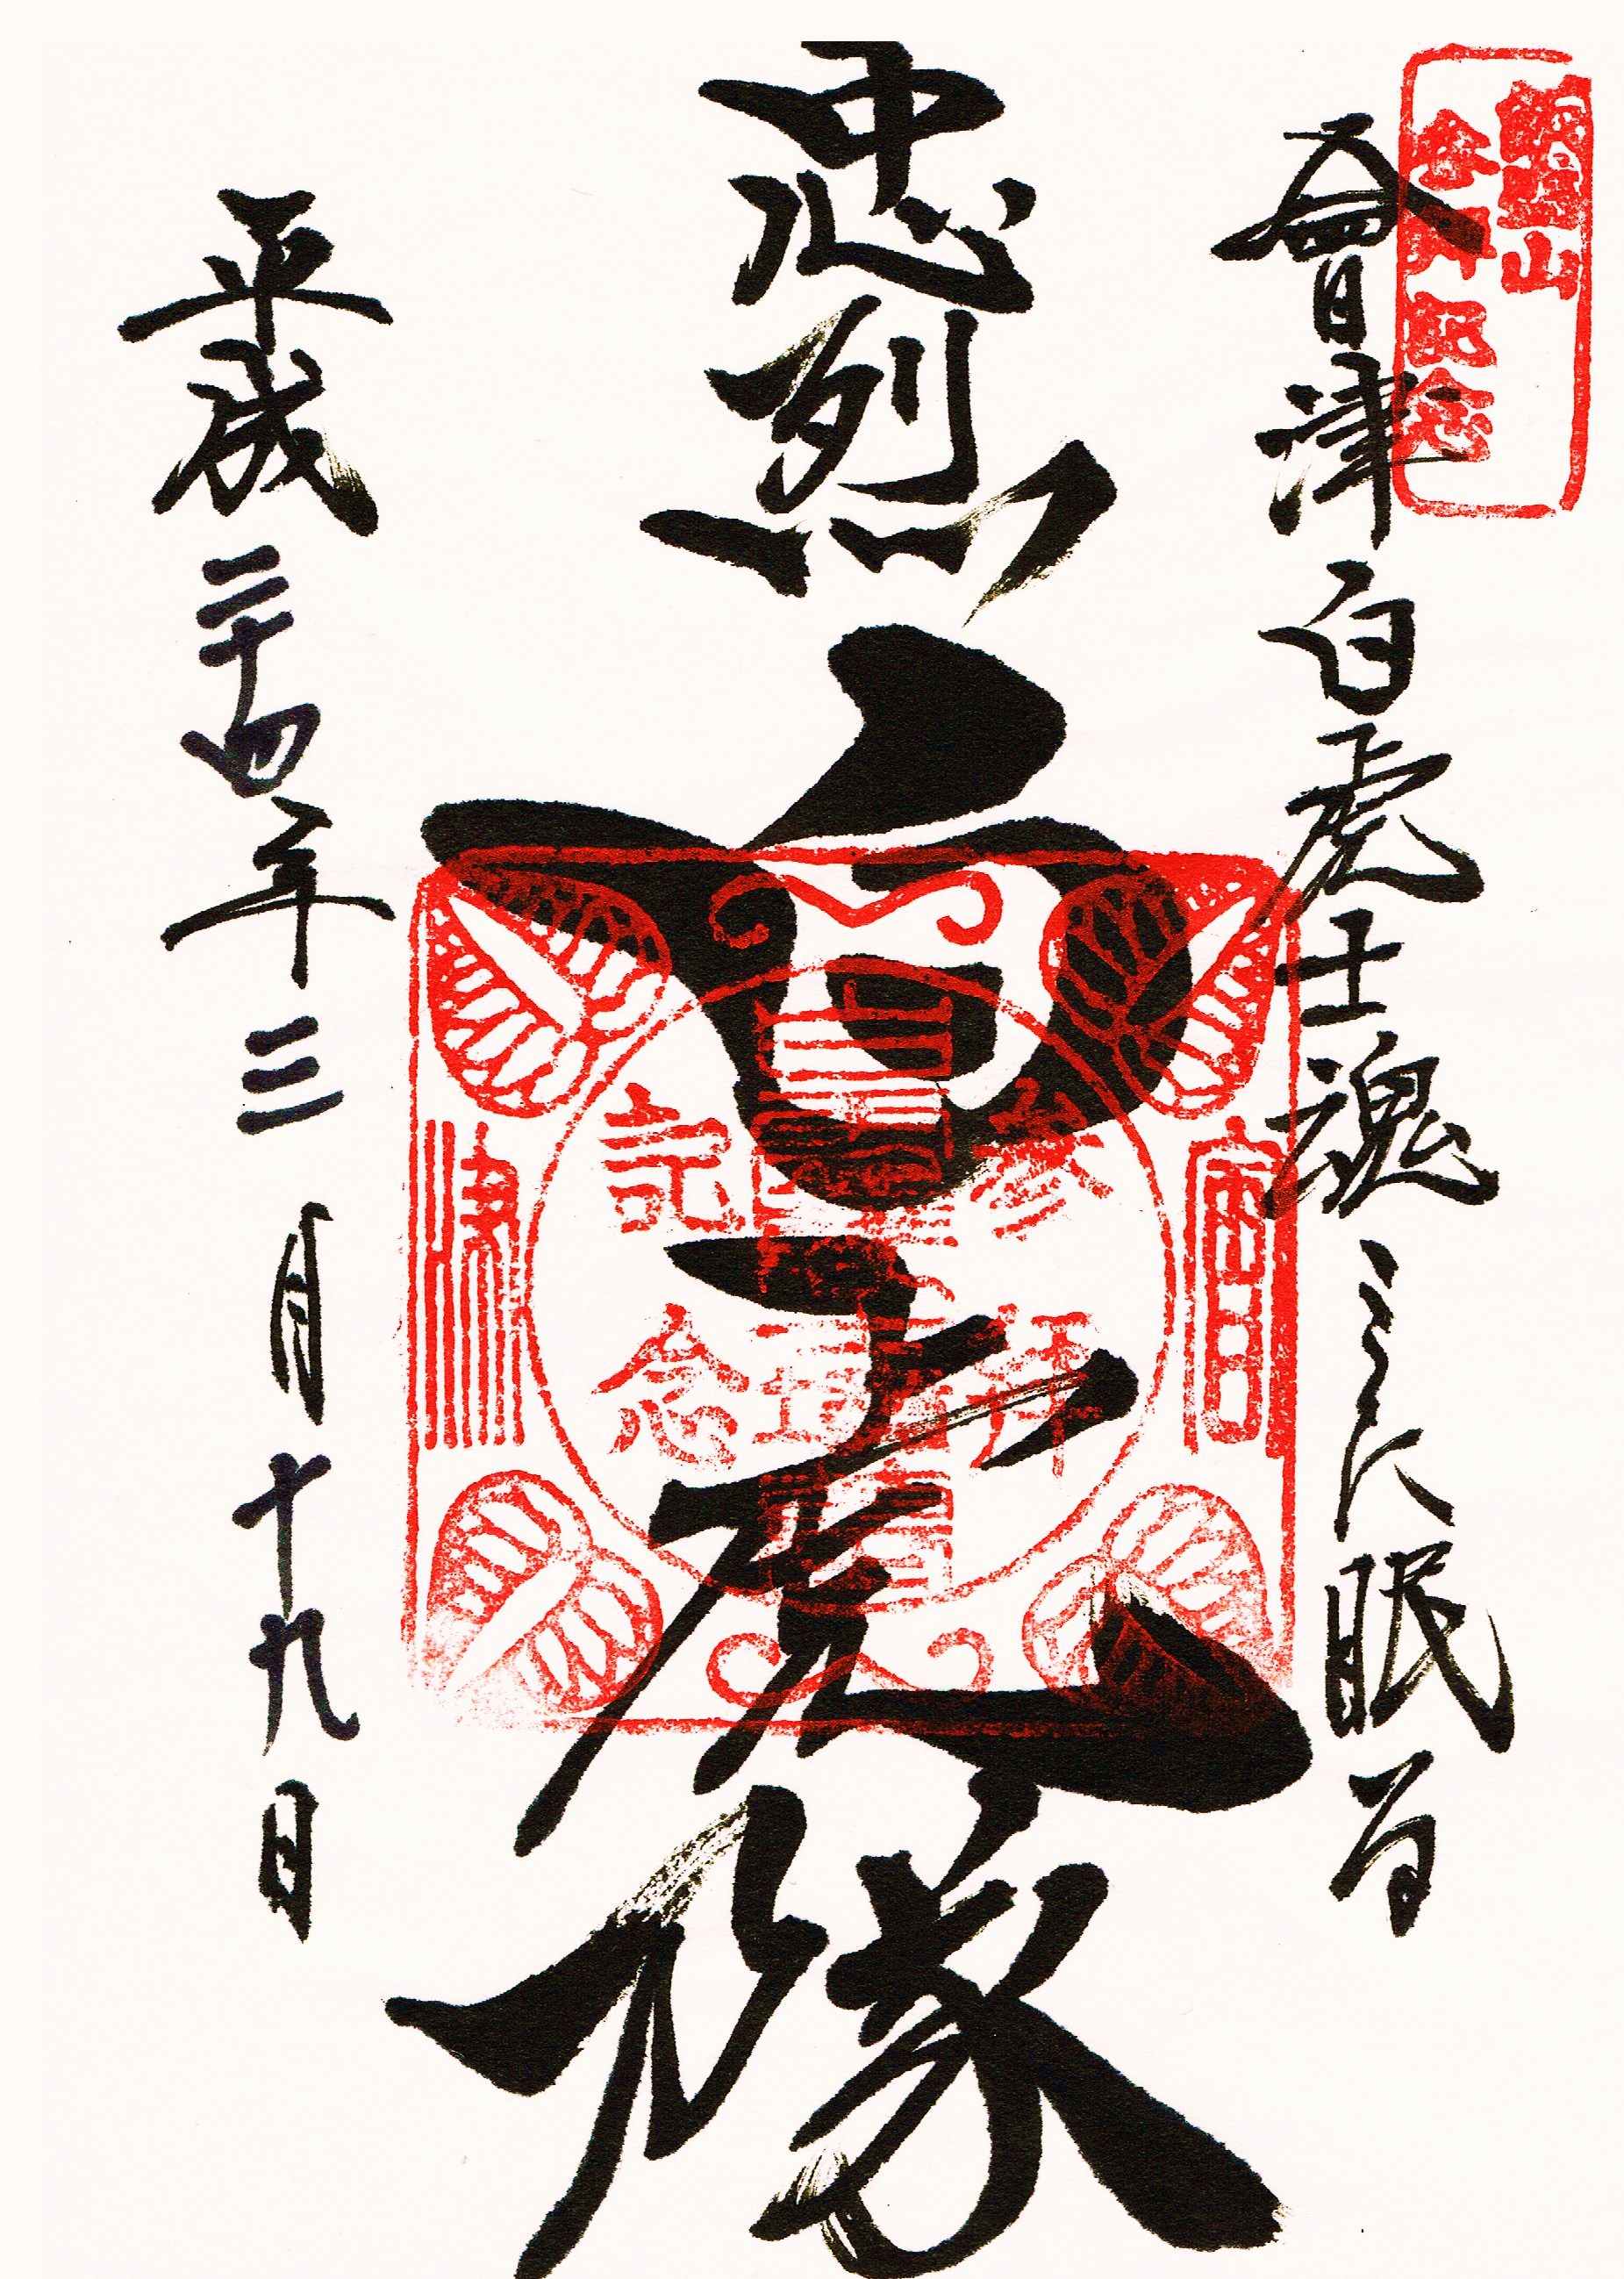 飯盛山
参拝記念
會津白虎士魂ここに眠る
忠烈
白虎隊
参拝
記念
平成二十四年三月十九日